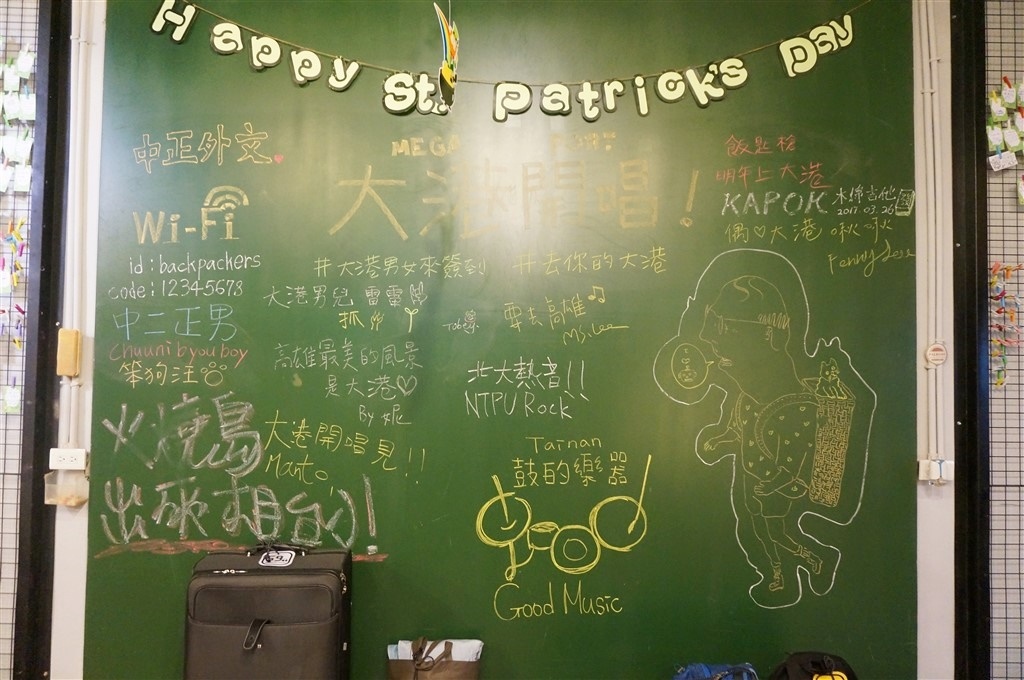 Happy St. Patrick's Day
中正外文
MEGA PORT
大港開唱！
Wi-Fi
id：backpackers
code：12345678
中二正男
Chuunibyou boy
笨狗汪
火燒島
出來相台!
#大港男女來簽到
#去你的大港
大港男兒 雷雷
抓
Tobe
要去高雄
Ms. Lee
高雄最美的風景
是大港♡
By 妮
北大熱音!!
NTPU Rock
大港開唱見!!
Manto
Tainan
鼓的樂器
Good Music
飯匙槍
明年上大港
KAPOK 木綿吉他
2017.03.26
偶♡大港 啾啾